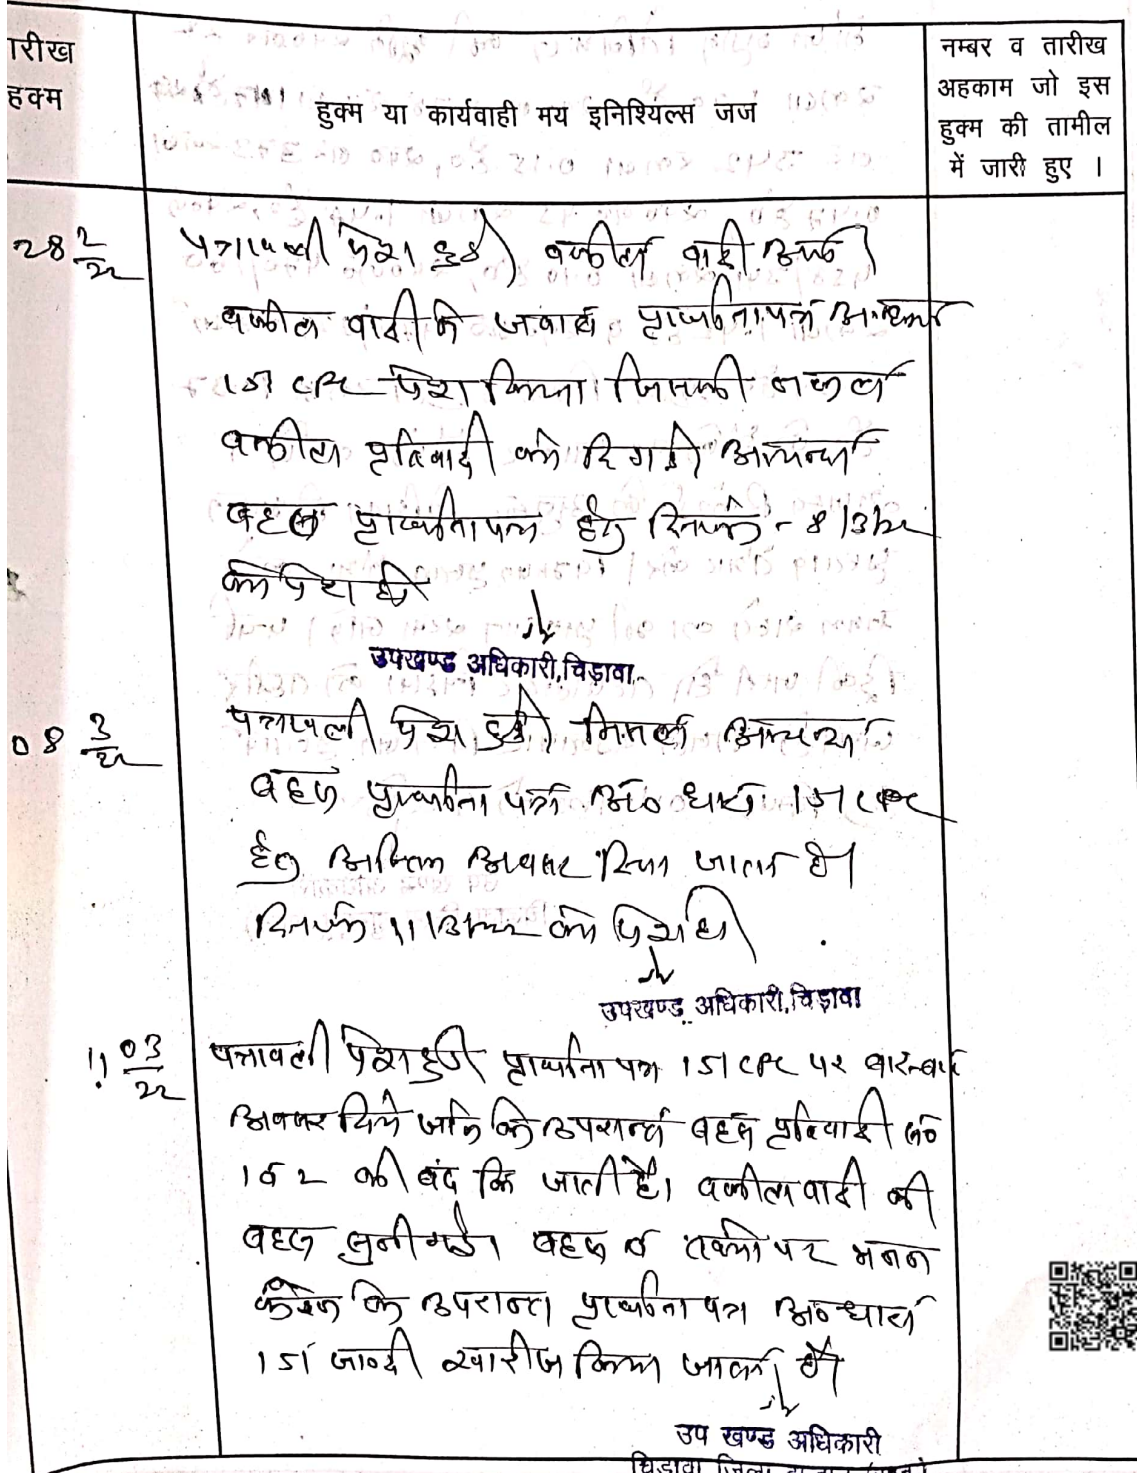 तारीख
हुक्म
हुक्म या कार्यवाही मय इनिशियल्स जज
नम्बर व तारीख
अहकाम जो इस
हुक्म की तामील
में जारी हुए ।
28 2/22
पत्रावली पेश हुई। वकील वादी उप०।
वकील वादी ने जवाब प्रार्थनापत्र अ.धारा
151 CPC पेश किया। जिसकी नकल
वकील प्रतिवादी को दि गई।
बहस प्रार्थनापत्र हेतु दिनांक - 8/3/22
को पेश हो
उपखण्ड अधिकारी,चिड़ावा
08 3/22
पत्रावली पेश हुई।
बहस प्रार्थना पत्र अ० धारा 151 CPC
हेतु अन्तिम अवसर दिया जाता है।
दिनांक 11/3/22 को पेश हो।
उपखण्ड अधिकारी,चिड़ावा
11 03/22
पत्रावली पेश हुई। प्रार्थना पत्र 151 CPC पर बार-बार
अवसर दिये जाने के उपरान्त बहस प्रतिवादी सं०
1 व 2 की बंद कि जाती है। वकील वादी की
बहस सुनी गई। बहस व तर्को पर मनन
करने के उपरान्त प्रार्थना पत्र अ० धारा
151 जा०दी खारीज किया जाता है।
उप खण्ड अधिकारी